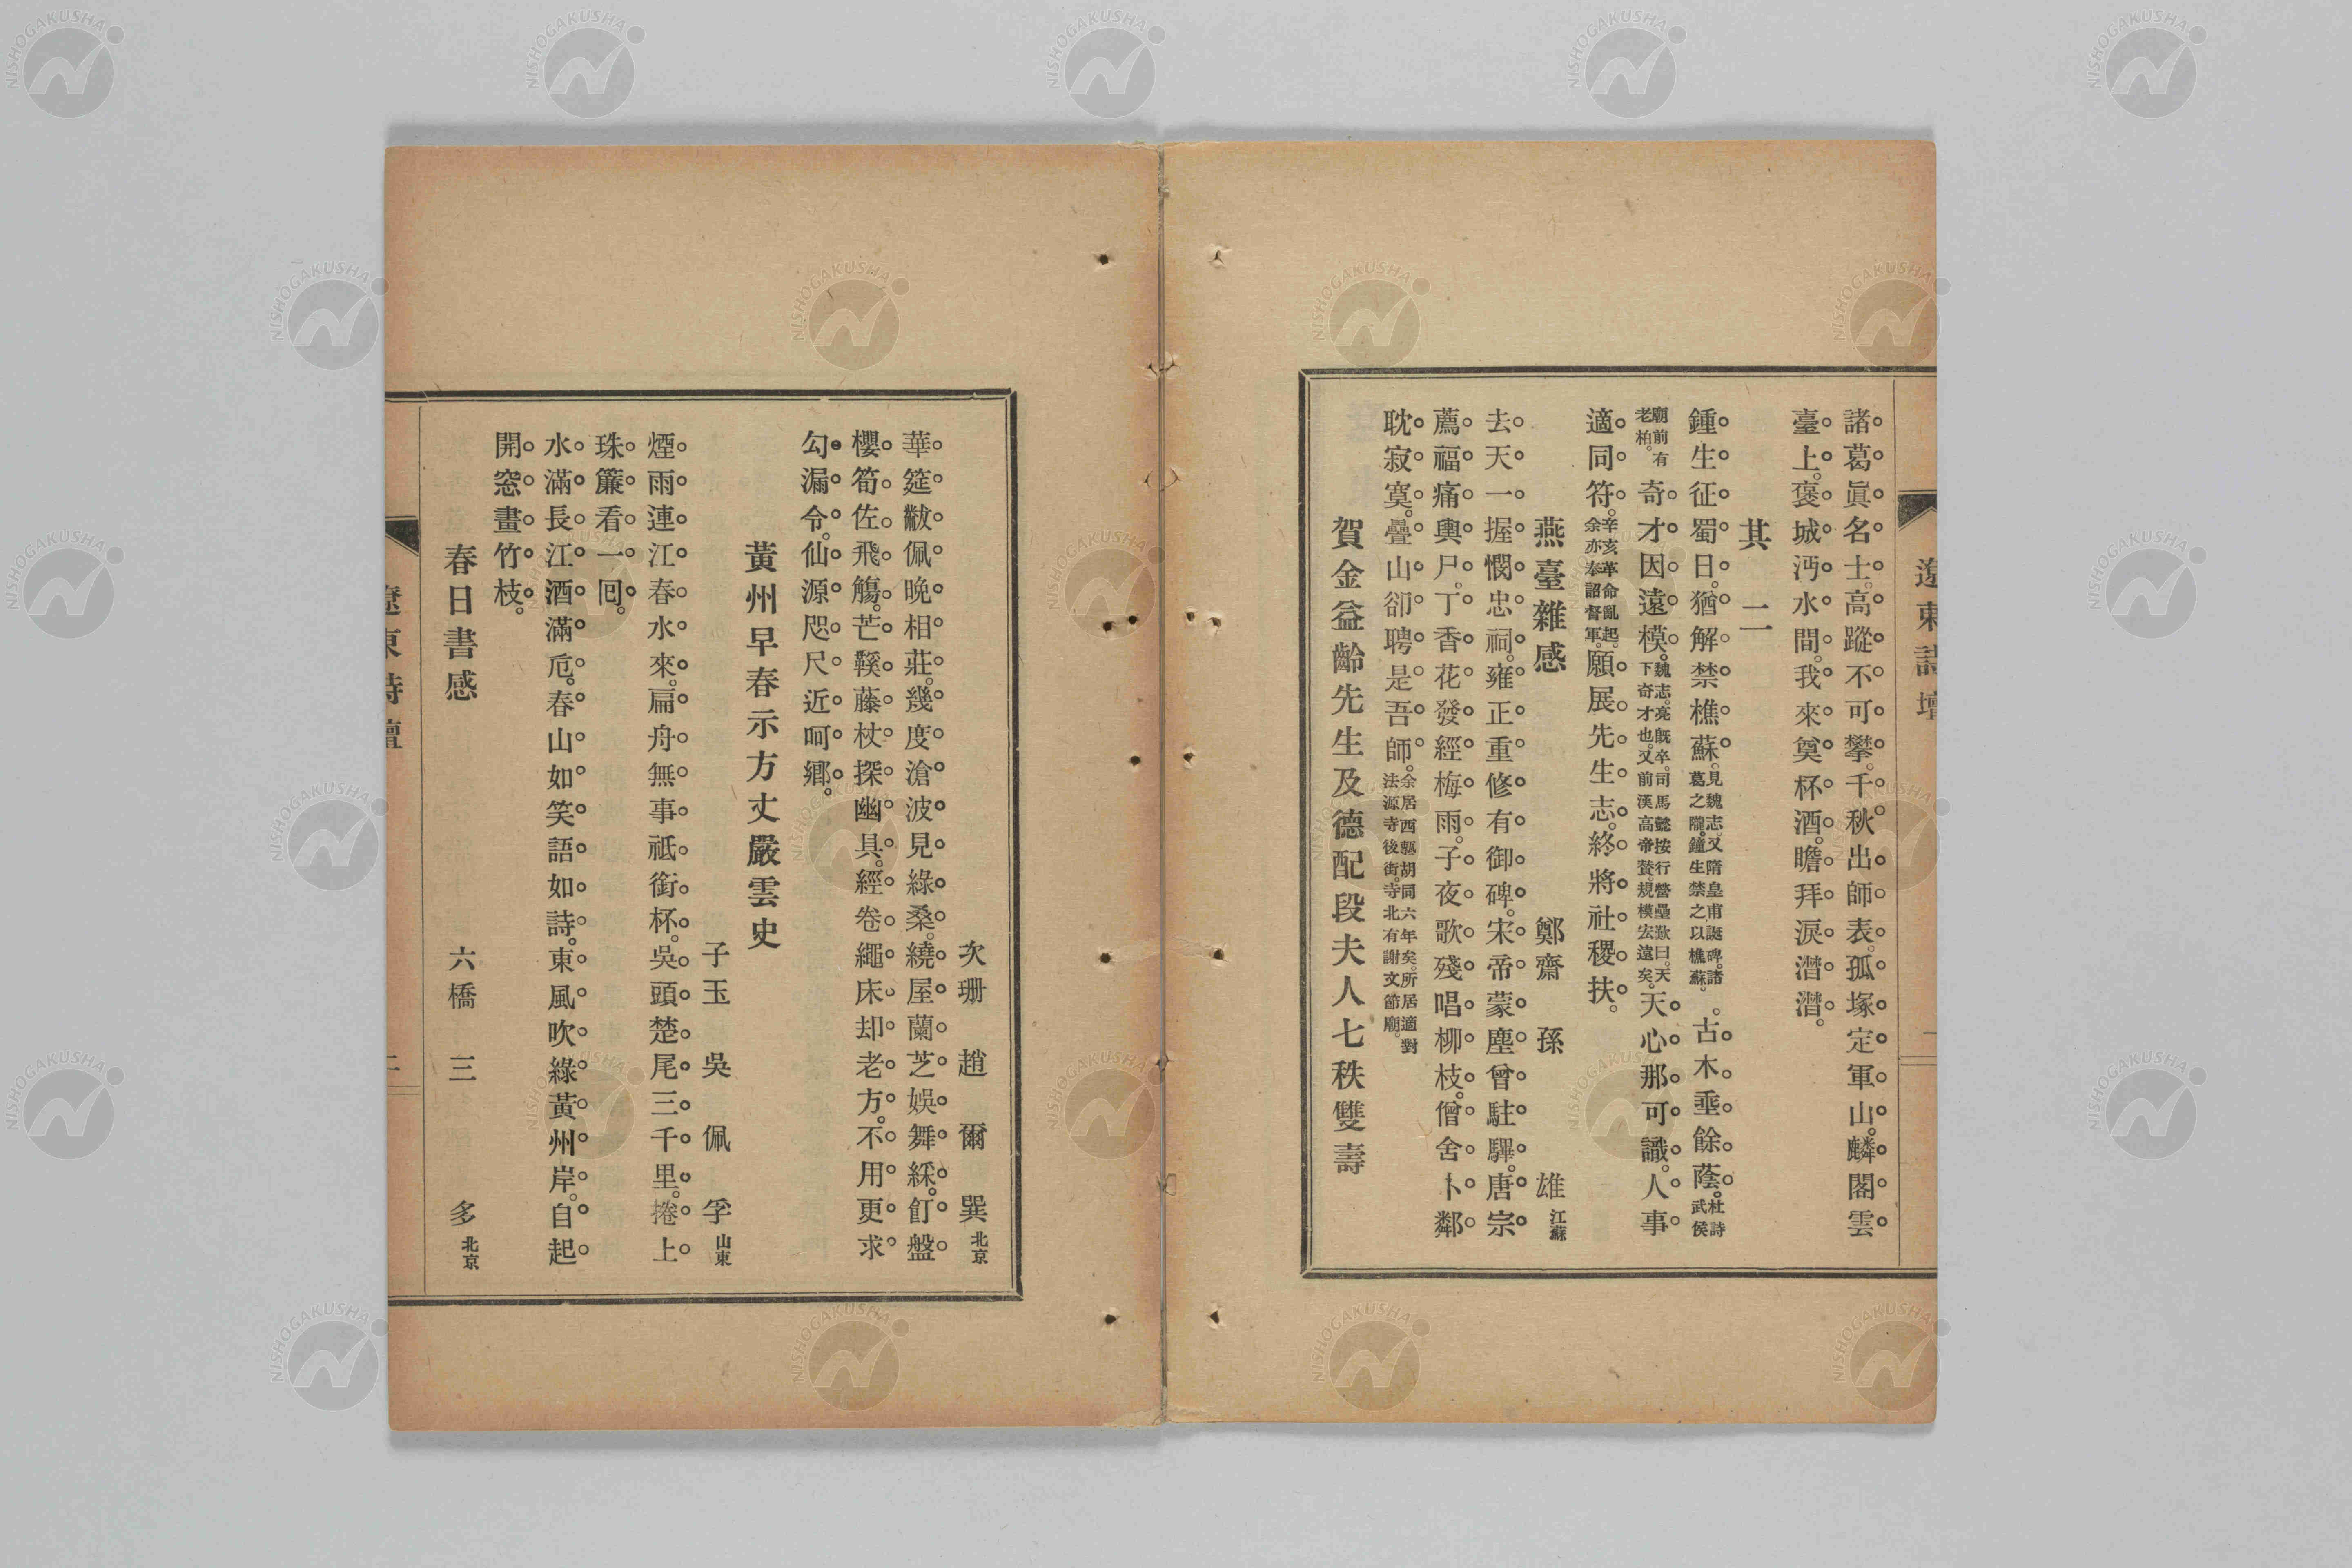 諸葛眞名士。高蹤不可攀。千秋出師表。孤塚定軍山。麟閣雲
臺上。褒城沔水間。我來奠杯酒。瞻拜淚潸潸。
其二
鍾生征蜀日。猶解禁樵蘇。見魏志。又隋皇甫誕碑。諸葛之隴。鐘生禁之以樵蘇。古木垂餘蔭。杜詩武侯
廟前有老柏。奇才因遠模。魏志。亮既卒。司馬懿按行營壘歎曰。天下奇才也。又前漢高帝贊。規模宏遠矣。天心那可識。人事
適同符。辛亥革命亂起。余亦奉詔督軍。願展先生志。終將社稷扶。
燕臺雜感 鄭齋 孫雄 江蘇
去天一握憫忠祠。雍正重修有御碑。宋帝蒙塵曾駐驆。唐宗
薦福痛輿尸。丁香花發經梅雨。子夜歌殘唱柳枝。僧舍卜鄰
耽寂寞。疊山卻聘是吾師。余居西甎胡同六年矣。所居適對法源寺後街。寺北有謝文節廟。
賀金益齡先生及德配段夫人七秩雙壽
遼東詩壇
次珊 趙爾巽 北京
華筵黻佩晚相莊。幾度滄波見綠桑。繞屋蘭芝娛舞綵。飣盤
櫻筍佐飛觴。芒鞵藤杖探幽具。經卷繩床却老方。不用更求
勾漏令。仙源咫尺近呵鄉。
黃州早春示方丈嚴雲史
子玉 吳佩孚 山東
煙雨連江春水來。扁舟無事祗銜杯。吳頭楚尾三千里。捲上
珠簾看一囘。
水滿長江酒滿巵。春山如笑語如詩。東風吹綠黃州岸。自起
開窓畫竹枝。
春日書感 六橋 三多 北京
遼東詩壇
二